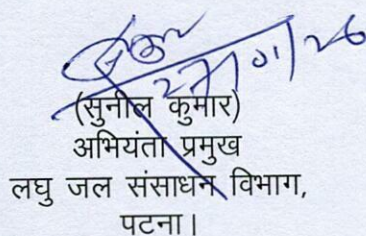 27/01/26
(सुनील कुमार)
अभियंता प्रमुख
लघु जल संसाधन विभाग,
पटना।